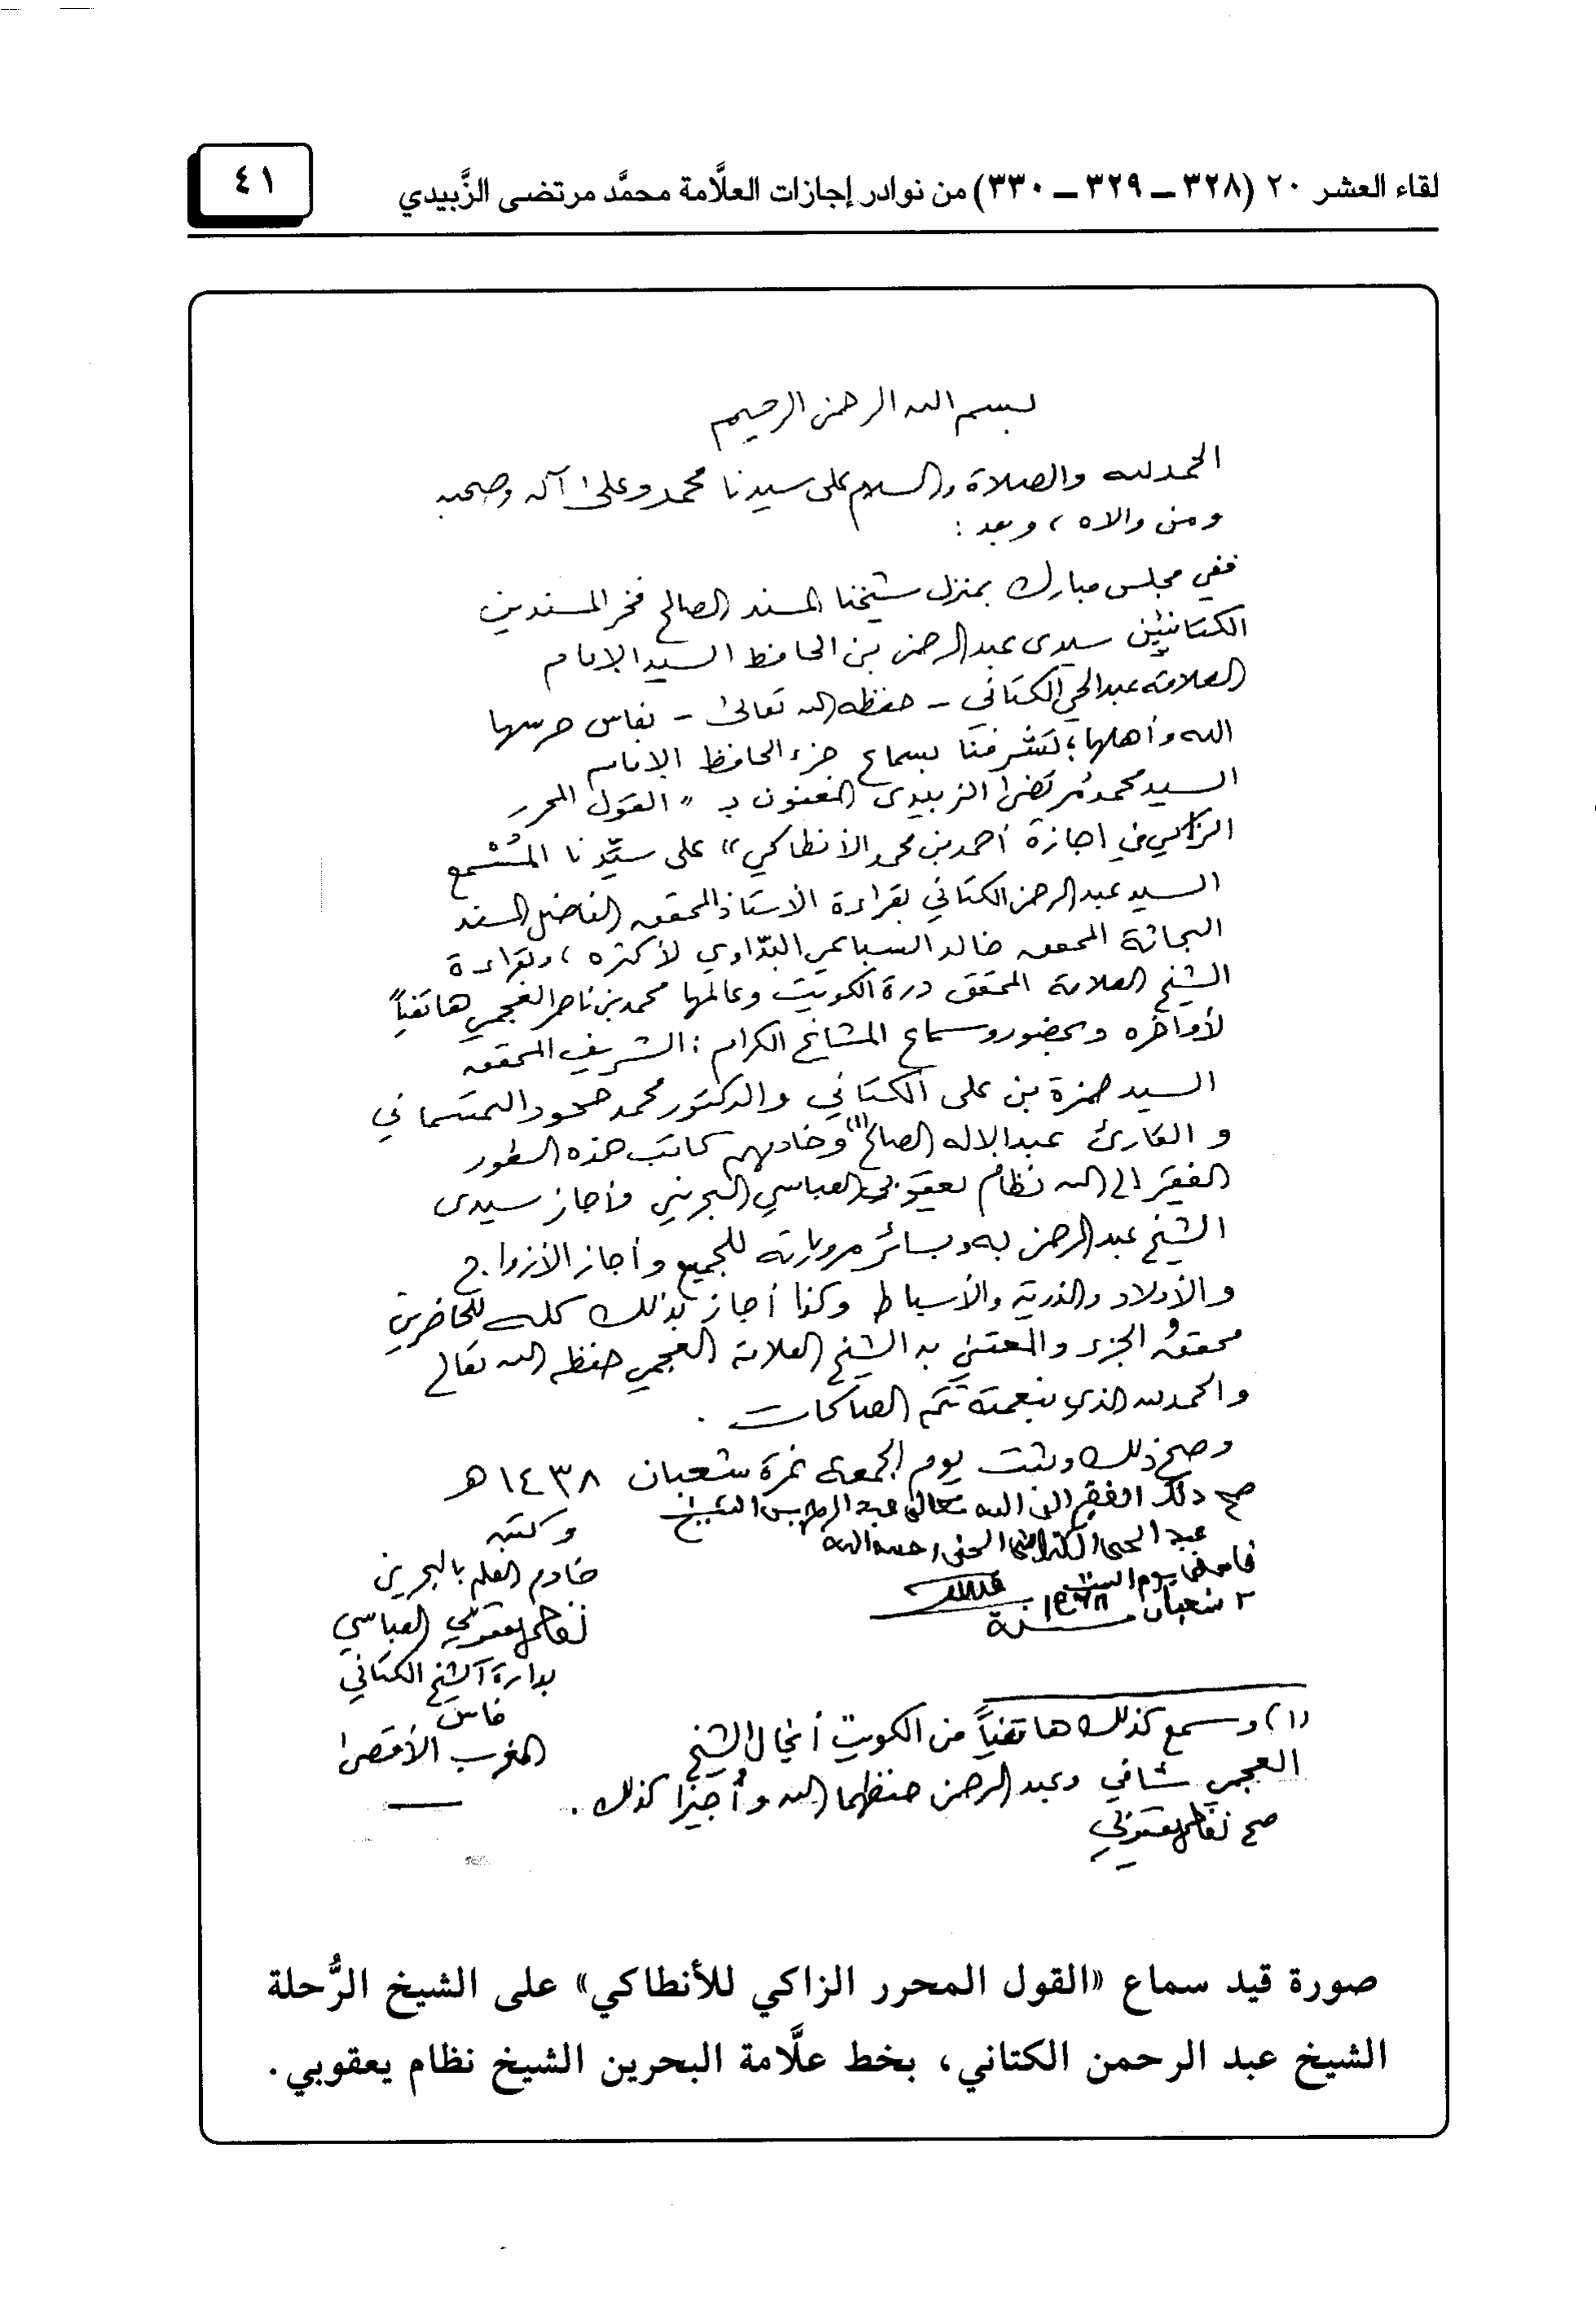 لقاء العشر ٢٠ (٣٢٨ ــ ٣٢٩ ــ ٣٣٠) من نوادر إجازات العلَّامة محمَّد مرتضى الزَّبيدي
٤١
بسم الله الرحمن الرحيم
الحمد لله والصلاة والسلام على سيدنا محمد وعلى آله وصحبه
ومن والاه، وبعد:
ففي مجلس مبارك بمنزل شيخنا المسند الصالح فخر المسندين
الكتانيين سيدى عبد الرحمن بن الحافظ السيد الإمام
العلامة عبد الحي الكتاني - حفظه الله تعالى - بفاس حرسها
الله وأهلها؛ تشرفنا بسماع جزء الحافظ الإمام
السيد محمد مُرتضى الزبيدى المعنون بـ «القول المحرر
الزاكي في اجازة أحمد بن محمد الأنطاكي» على سيّدنا المُسْمع
السيد عبد الرحمن الكتاني بقراءة الاستاذ المحقق الفاضل المسند
البحاثة المحقق خالد السباعي البدّاوي لأكثره، وبقراءة
الشيخ العلامة المحقق درة الكويت وعالمها محمد بن ناصر العجمي هاتفياً
لأواخره وبحضور وسماع المشايخ الكرام: الشريف المحقق
السيد حمزة بن على الكتاني والدكتور محمد صحود التمتماني
و القارئ عبد الاله الصالح(١) وخادمهم كاتب هذه السطور
الفقير الى الله نظام يعقوبي العباسي البحريني وأجاز سيدى
الشيخ عبد الرحمن به وبسائر مروياته للجميع وأجاز الأزواج
والأولاد والذرية والأسباط وكذا أجاز بذلك كله للحاضرين
محققُه الجزء والمعتني به الشيخ العلامة العجمي حفظه الله تعالى
والحمد لله الذي بنعمته تتم الصالحات.
وصح ذلك وثبت يوم الجمعة غرة شعبان ١٤٣٨هـ
صح ذلك الفقير الى الله تعالى عبد الرحمن بن الشيخ
عبد الحي الكتاني الحسني
يوم السبت
٢ شعبان سنة ١٤٣٨
وكتبه
خادم العلم بالبحرين
نظام يعقوبي العباسي
بدارة الشيخ الكتاني
فاس
المغرب الأقصى
(١) وسمع كذلك هاتفياً من الكويت أنجال الشيخ
العجمي شافي وعبد الرحمن حفظهما الله وأُجيزا كذلك.
صح نظام يعقوبي
صورة قيد سماع «القول المحرر الزاكي للأنطاكي» على الشيخ الرُّحلة
الشيخ عبد الرحمن الكتاني، بخط علَّامة البحرين الشيخ نظام يعقوبي.